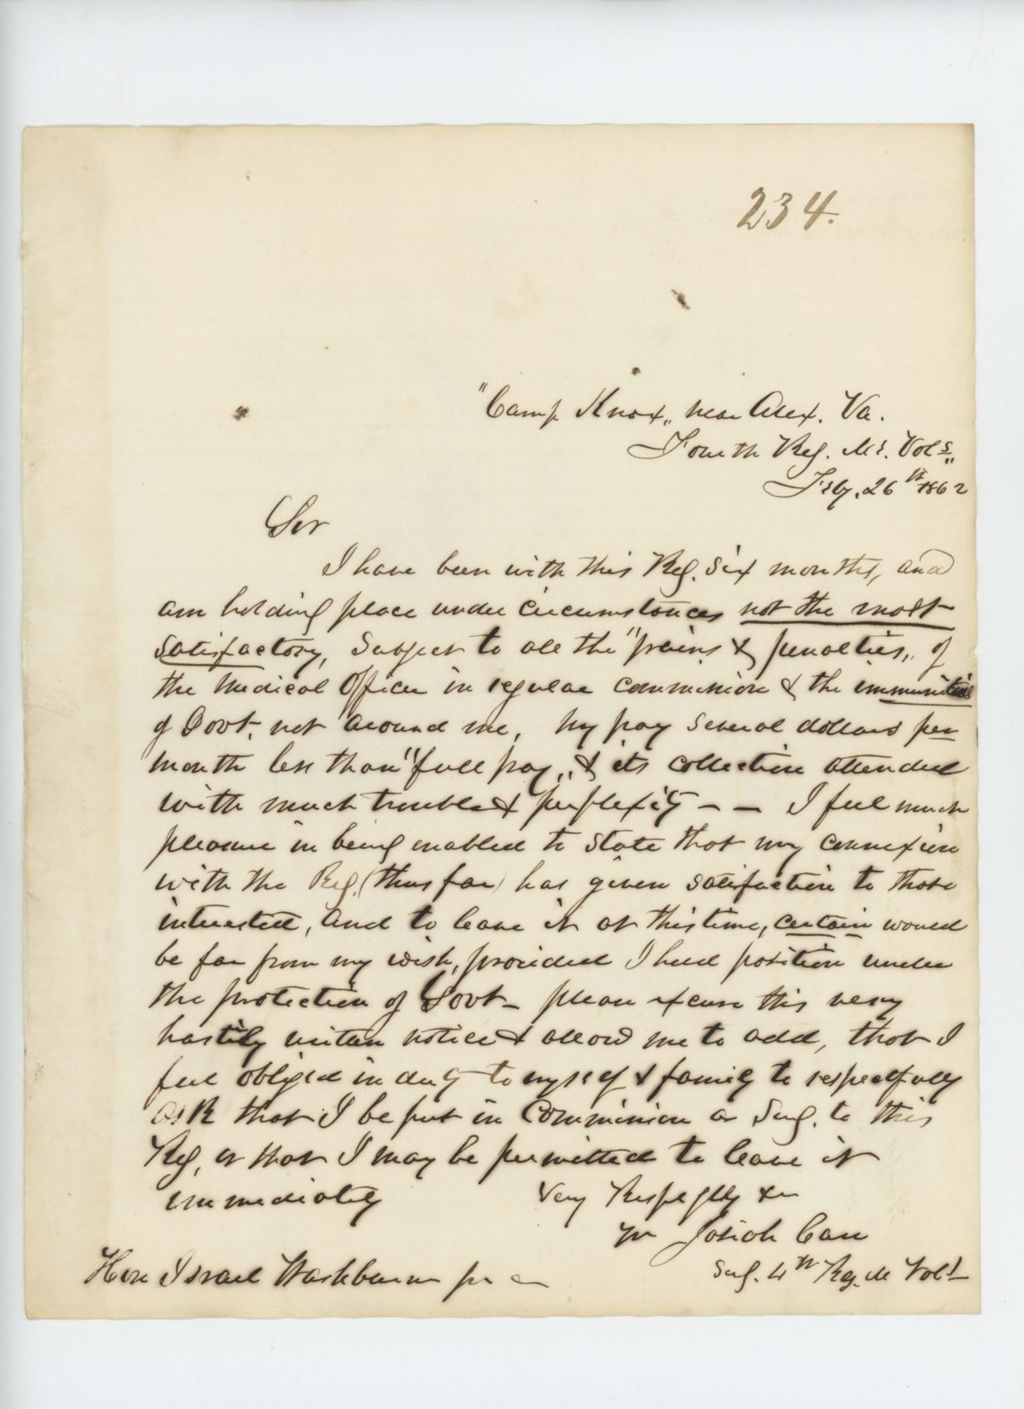 234.
"Camp Knox,, near Alex. Va.
Fourth Reg. Me. Vols,,
Feby. 26th 1862
Sir
I have been with this Reg. six months, and
am holding place under circumstances not the most
satisfactory, subject to all the "pains & penalties,, of
the Medical Officer in regular commission & the immunities
of Govt. not around me, my pay several dollars per
month less than "full pay,, & its collection attended
with much trouble & perplexity – – I feel much
pleasure in being enabled to state that my connexion
with the Reg. (thus far) has given satisfaction to those
interested, and to leave it at this time, certain would
be far from my wish, provided I held position under
the protection of Govt – please excuse this very
hastily written notice & allow me to add, that I
feel obliged in duty to myself & family to respectfully
ask that I be put in Commission as Surg. to this
Reg, or that I may be permitted to leave it
immediately
Very Respectfly &c
Josiah Carr
Hon Israel Washburn jr
Surg. 4th Reg. Me Vols